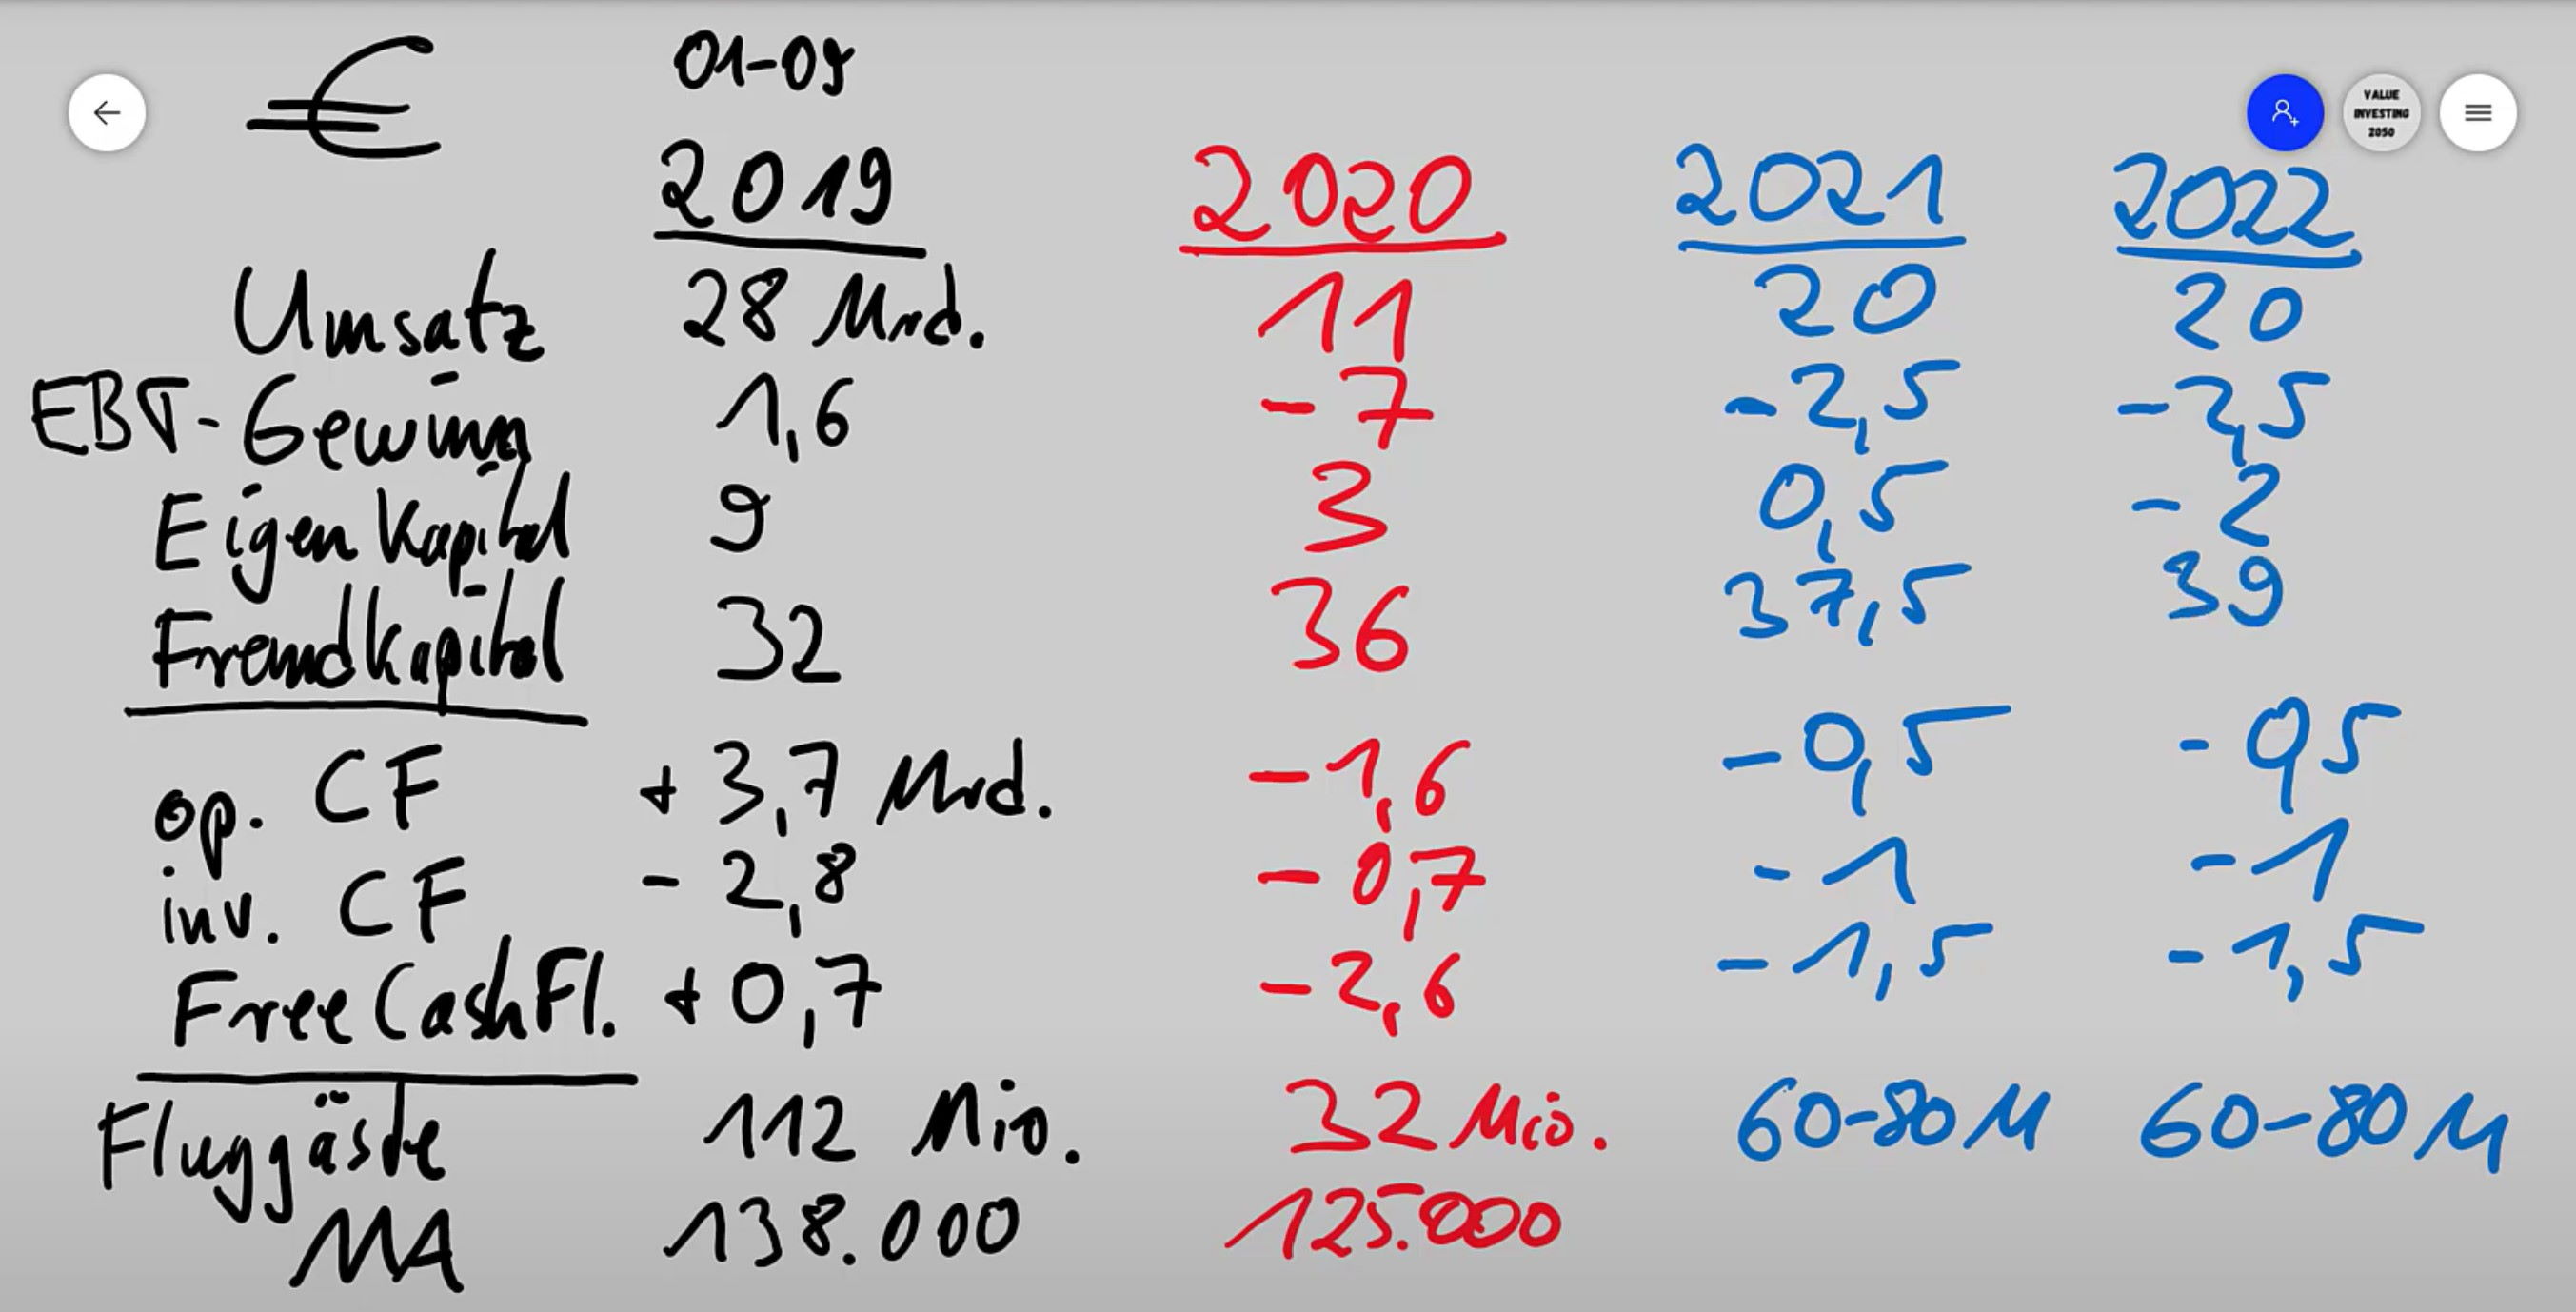 € 01-09
VALUE
INVESTING
2050
2019 2020 2021 2022
Umsatz 28 Mrd. 11 20 20
EBT-Gewinn 1,6 -7 -2,5 -2,5
Eigenkapital 9 3 0,5 -2
Fremdkapital 32 36 37,5 39
op. CF +3,7 Mrd. -1,6 -0,5 -0,5
inv. CF -2,8 -0,7 -1 -1
Free CashFl. +0,7 -2,6 -1,5 -1,5
Fluggäste 112 Mio. 32 Mio. 60-80 M 60-80 M
MA 138.000 125.000